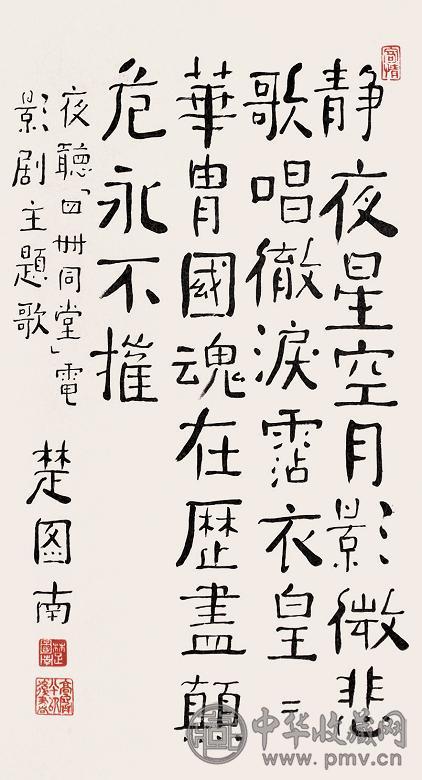 静夜星空月影微悲
歌唱徹淚霑衣皇〻
華冑國魂在歷盡顛
危永不摧
夜聽「四世同堂」電
影剧主題歌
楚图南
楚圖南
中华收藏网
www.pmv.cn